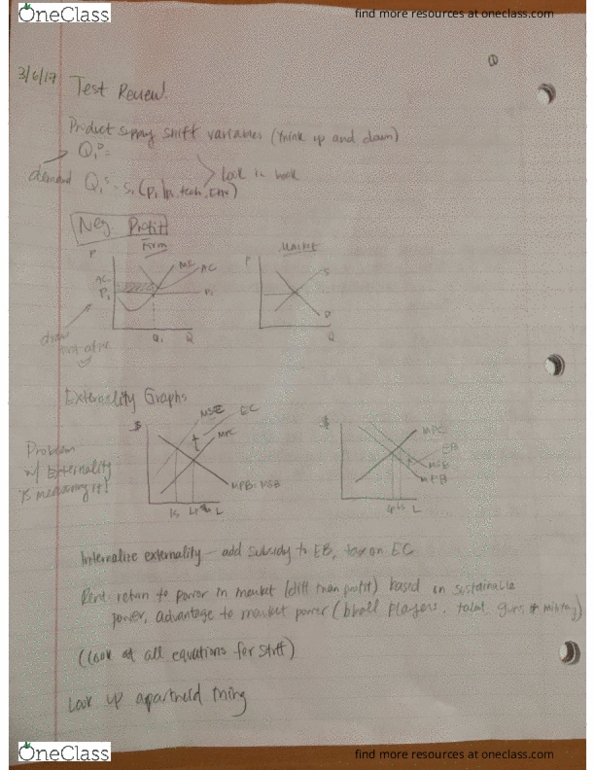 OneClass
find more resources at oneclass.com
3/6/17
Test Review
Product supply shift variables (think up and down)
Q₁ᴰ =
demand
Q₁ˢ = S₁(P₁, tech,
Look in book
Neg. Profit
Firm
Market
P
MC
AC
AC
P₁
P₁
Q₁
Q
P
S
D
Q
draw
Externality Graphs
$
EC
MPC
MPB=MSB
L
$
MPC
EB
MSB
MPB
L
Problem
w/ Externality
is measuring it!
Internalize externality – add subsidy to EB, tax on EC
Rent: return to power in market (diff than profit) based on sustainable
power, advantage to market power (bball players, talent, guns,
(Look at all equations for stuff)
Look up apartheid thing
OneClass
find more resources at oneclass.com